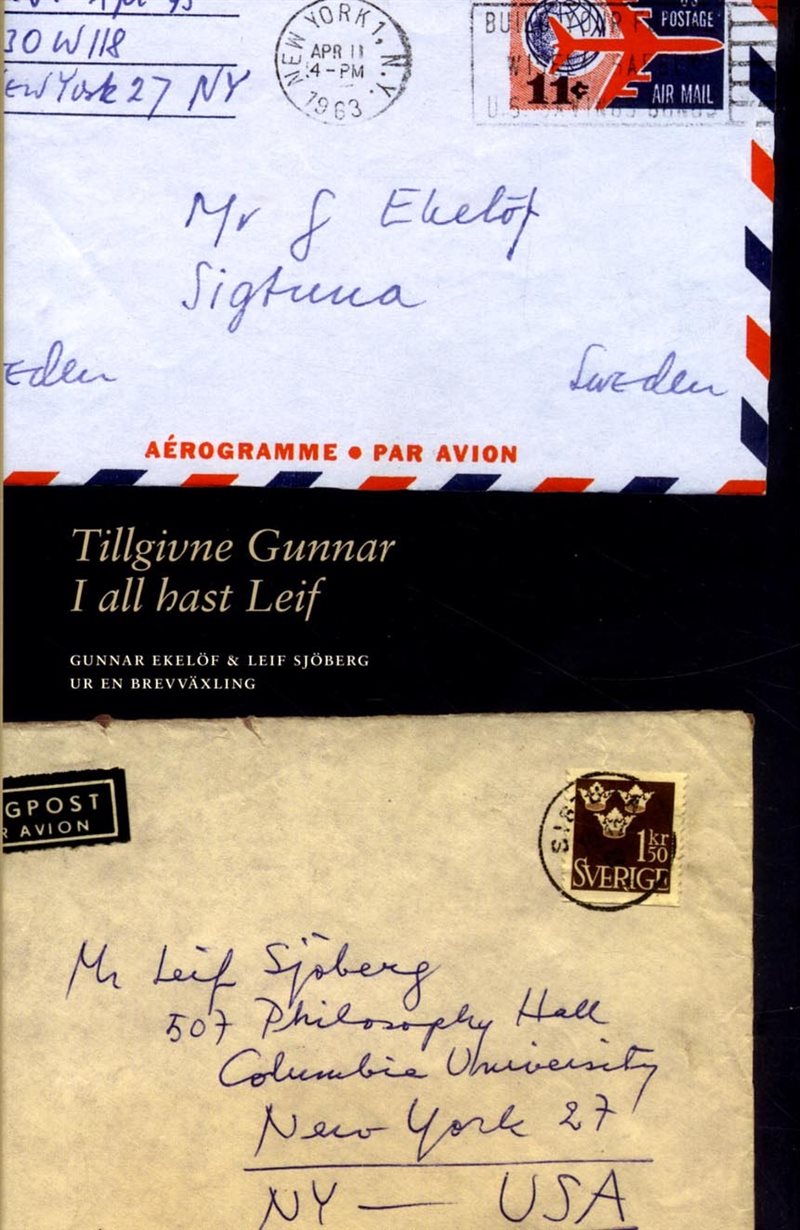 30 W 118
New York 27 NY
NEW YORK 1, N.Y.
APR 11
4-PM
1963
U.S. SAVINGS BONDS
POSTAGE
11¢
AIR MAIL
Mr G Ekelöf
Sigtuna
eden
Sweden
AÉROGRAMME • PAR AVION
Tillgivne Gunnar
I all hast Leif
GUNNAR EKELÖF & LEIF SJÖBERG
UR EN BREVVÄXLING
GPOST
R AVION
SIG
1 kr 50
SVERIGE
Mr Leif Sjöberg
507 Philosophy Hall
Columbia University
New York 27
NY — USA